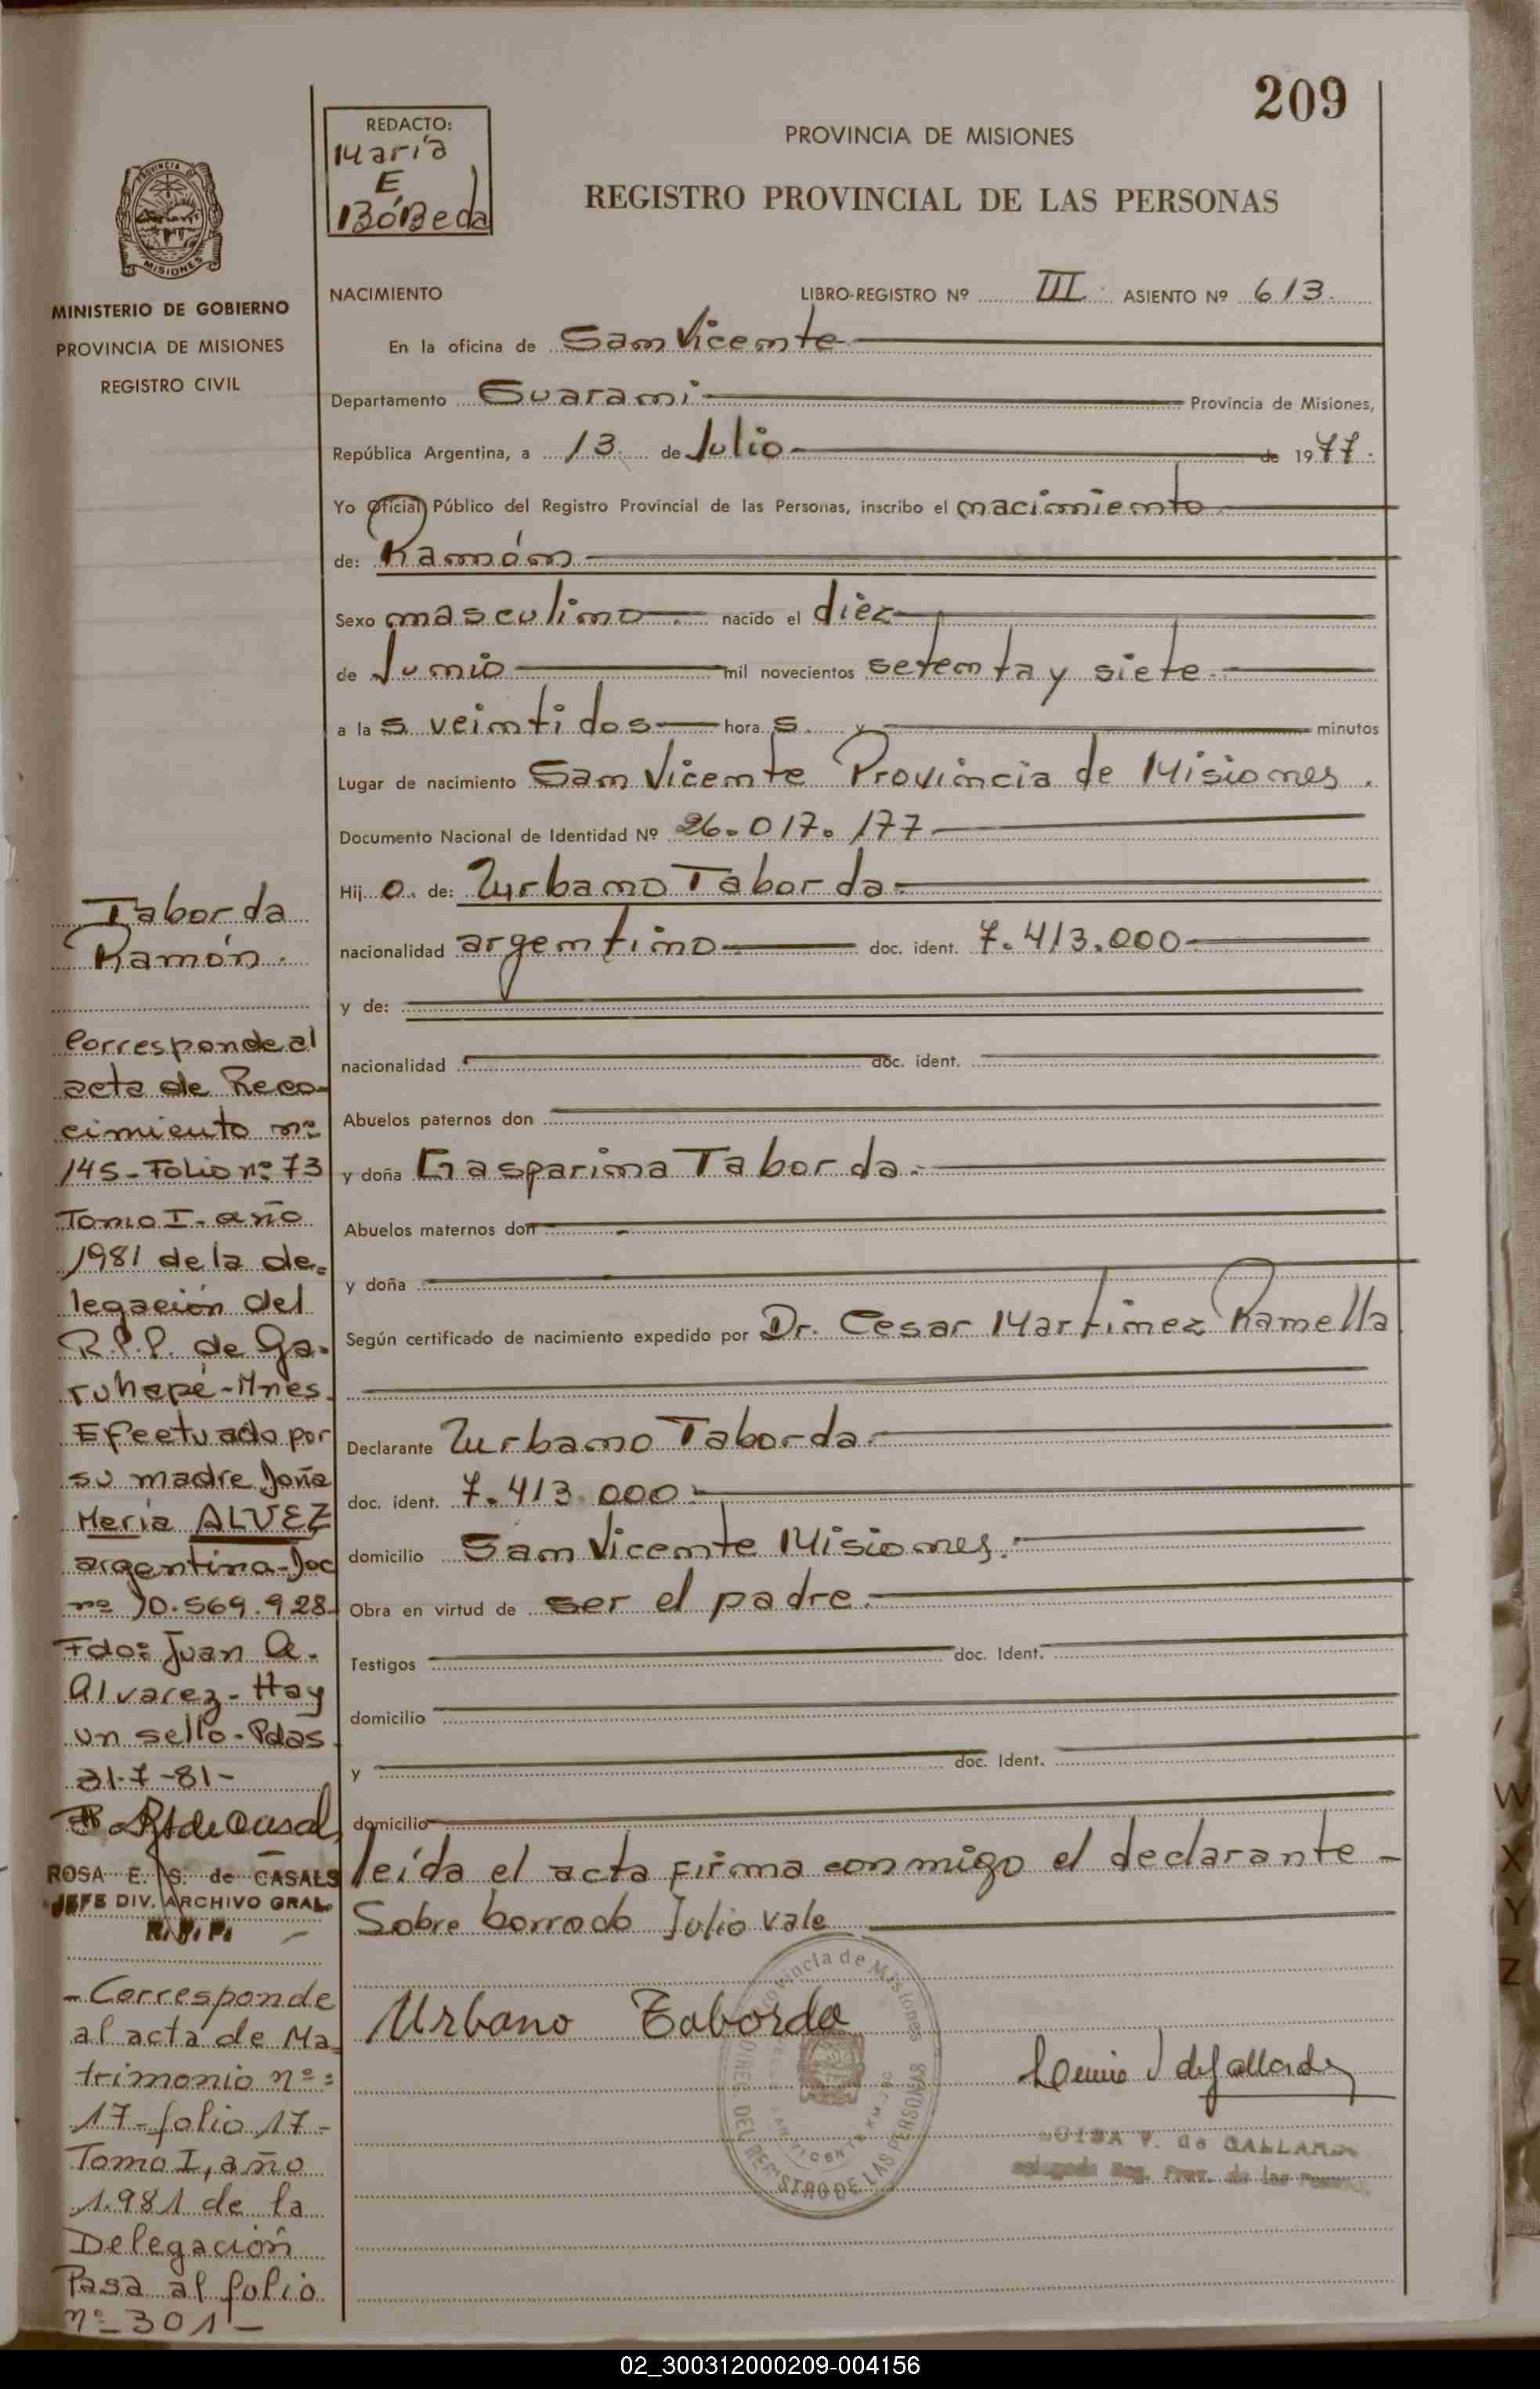 209
REDACTO:
María
E
BóBeda
PROVINCIA DE MISIONES
REGISTRO PROVINCIAL DE LAS PERSONAS
PROVINCIA DE
MISIONES
MINISTERIO DE GOBIERNO
PROVINCIA DE MISIONES
REGISTRO CIVIL
NACIMIENTO LIBRO-REGISTRO Nº III ASIENTO Nº 613.
En la oficina de San Vicente
Departamento Guarani Provincia de Misiones,
República Argentina, a 13 de Julio de 1977.
Yo Oficial Público del Registro Provincial de las Personas, inscribo el nacimiento
de: Ramón
Sexo masculino. nacido el diez
de Junio mil novecientos setenta y siete.
a las veintidos horas y minutos
Lugar de nacimiento San Vicente Provincia de Misiones.
Documento Nacional de Identidad Nº 26.017.177
Hijo. de: Urbano Taborda.
nacionalidad argentino doc. ident. 7.413.000
y de:
nacionalidad doc. ident.
Abuelos paternos don
y doña Gasparina Taborda.
Abuelos maternos don
y doña
Según certificado de nacimiento expedido por Dr. Cesar Martinez Ramella
Declarante Urbano Taborda.
doc. ident. 7.413.000.
domicilio San Vicente Misiones.
Obra en virtud de ser el padre.
Testigos doc. Ident.
domicilio
y doc. Ident.
domicilio
leída el acta firma conmigo el declarante -
Sobre borrado Julio vale
Urbano Taborda
Provincia de Misiones
DIREC. DEL REGISTRO DE LAS PERSONAS
SAN VICENTE
V. de GALLARDO
Reg. Prov. de las
Taborda
Ramón.
Corresponde al
acta de Reco-
cimiento nº
145-Folio nº 73
Tomo I- año
1981 de la de-
legación del
R.P.P. de Ga-
ruhapé-Mnes.
Efectuado por
su madre Doña
Maria ALVEZ
argentina-Doc
nº 10.569.928-
Fdo: Juan A.
Alvarez- Hay
un sello- Pdas
31-7-81-
ROSA E. S. de CASALS
JEFE DIV. ARCHIVO GRAL.
R.P.P.
- Corresponde
al acta de Ma-
trimonio nº:
17-folio 17-
Tomo I, año
1.981 de la
Delegación
Pasa al folio
nº 301-
W
X
Y
Z
02_300312000209-004156